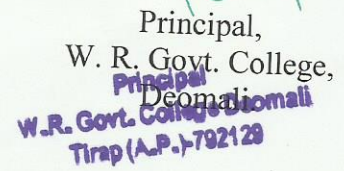 Principal,
W. R. Govt. College,
Deomali.
Principal
W.R. Govt. College Deomali
Tirap (A.P.)-792129